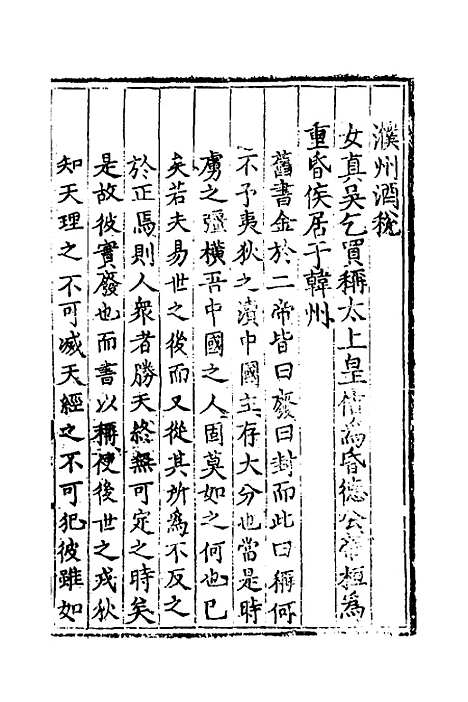 濮州酒稅
女真吳乞買稱太上皇佶爲昏德公帝桓爲
重昏侯居于韓州
舊書金於二帝皆曰廢曰封而此曰稱何
不予夷狄之瀆中國主存大分也當是時
虜之彊橫吾中國之人固莫如之何也已
矣若夫易世之後而又從其所爲不反之
於正焉則人衆者勝天終無可定之時矣
是故彼實廢也而書以稱使後世之戎狄
知天理之不可滅天經之不可犯彼雖如